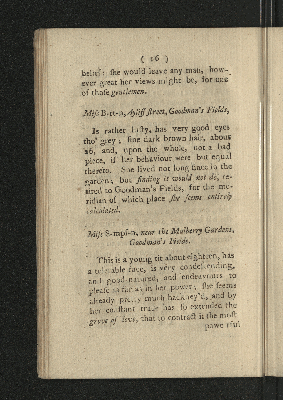 ( 26 )
belief; she would leave any man, how-
ever great her views might be, for one
of those gentlemen.
Miss B-tt-n, Ayliff street, Goodman's Fields,
Is rather lusty, has very good eyes
tho' grey; fine dark brown hair, about
26, and, upon the whole, not a bad
piece, if her behaviour were but equal
thereto. She lived not long since in the
garden, but finding it would not do, re-
tired to Goodman's Fields, for the me-
ridian of which place she seems entirely
calculated.
Miss S-mps-n, near the Mulberry Gardens,
Goodman's Fields.
This is a young tit about eighteen, has
a tolerable face, is very condescending,
and good-natured, and endeavours to
please as far as in her power; she seems
already pretty much hackney'd, and by
her constant trade has so extended the
grove of love, that to contract it the most
powerful